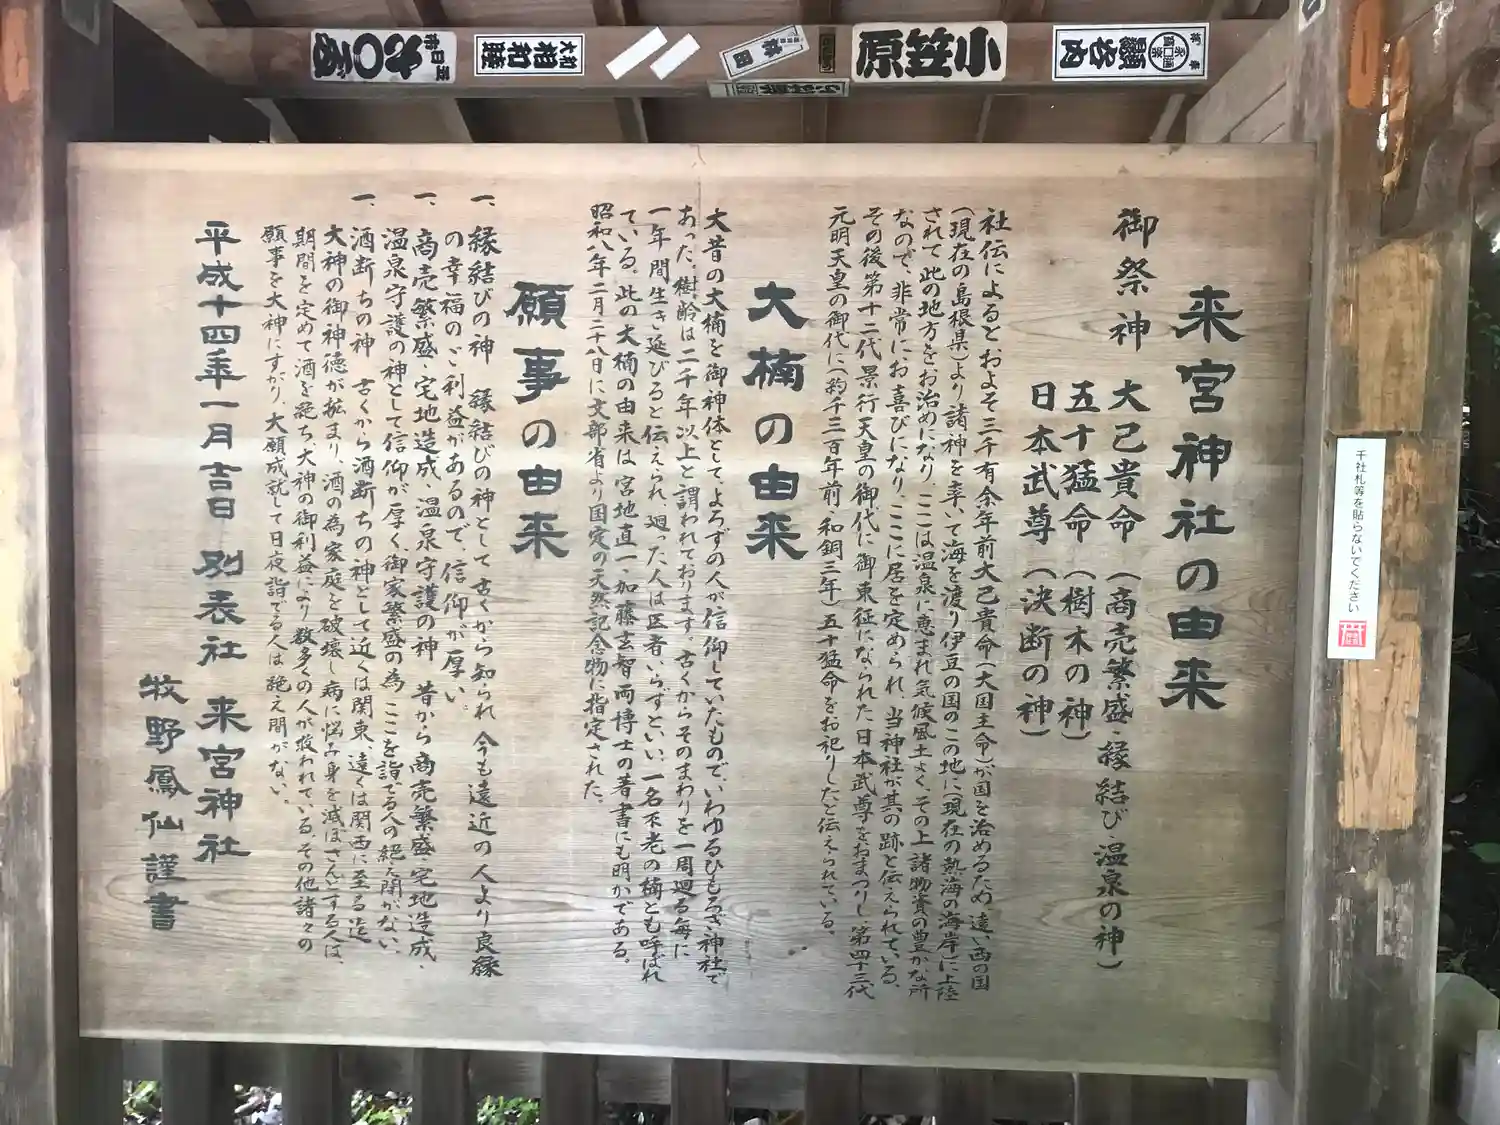 来宮神社の由来
御祭神 大己貴命（商売繁盛・縁結び・温泉の神）
五十猛命（樹木の神）
日本武尊（決断の神）
社伝によるとおよそ三千有余年前大己貴命（大国主命）が国を治めるため、遠い西の国
（現在の島根県）より諸神を率いて海を渡り伊豆の国のこの地に（現在の熱海の海岸）に上陸
されて此の地方をお治めになり、ここは温泉に恵まれ気候風土よく、その上諸物資の豊かな所
なので、非常にお喜びになり、ここに居を定められ、当神社が其の跡と伝えられている。
その後第十二代景行天皇の御代に御東征になられた日本武尊をおまつりし、第四十三代
元明天皇の御代に（約千三百年前、和銅三年）五十猛命をお祀りしたと伝えられている。
大楠の由来
大昔の大楠を御神体として、よろずの人が信仰していたもので、いわゆるひもろぎ神社で
あった。樹齢は二千年以上と謂われております。古くからそのまわりを一周廻る毎に
一年間生き延びると伝えられ、廻った人は医者いらずといい、一名不老の楠とも呼ばれ
ている。此の大楠の由来は宮地直一、加藤玄智両博士の著書にも明かである。
昭和八年二月二十八日に文部省より国定の天然記念物に指定された。
願事の由来
一、縁結びの神 縁結びの神として古くから知られ今も遠近の人より良縁
の幸福のご利益があるので、信仰が厚い。
一、商売繁盛・宅地造成・温泉守護の神 昔から商売繁盛・宅地造成・
温泉守護の神として信仰が厚く御家繁盛の為、ここを詣でる人の絶え間がない。
一、酒断ちの神 古くから酒断ちの神として近くは関東、遠くは関西に至る迄
大神の御神徳が拡まり、酒の為家庭を破壊し病に悩み身を滅ぼさんとする人は、
期間を定めて酒を絶ち、大神の御利益により数多くの人が救われている。その他諸々の
願事を大神にすがり、大願成就して日夜詣でる人は絶え間がない。
平成十四年一月吉日 別表社 来宮神社
牧野鳳仙謹書
千社札等を貼らないでください
小笠原
大和
相和睦